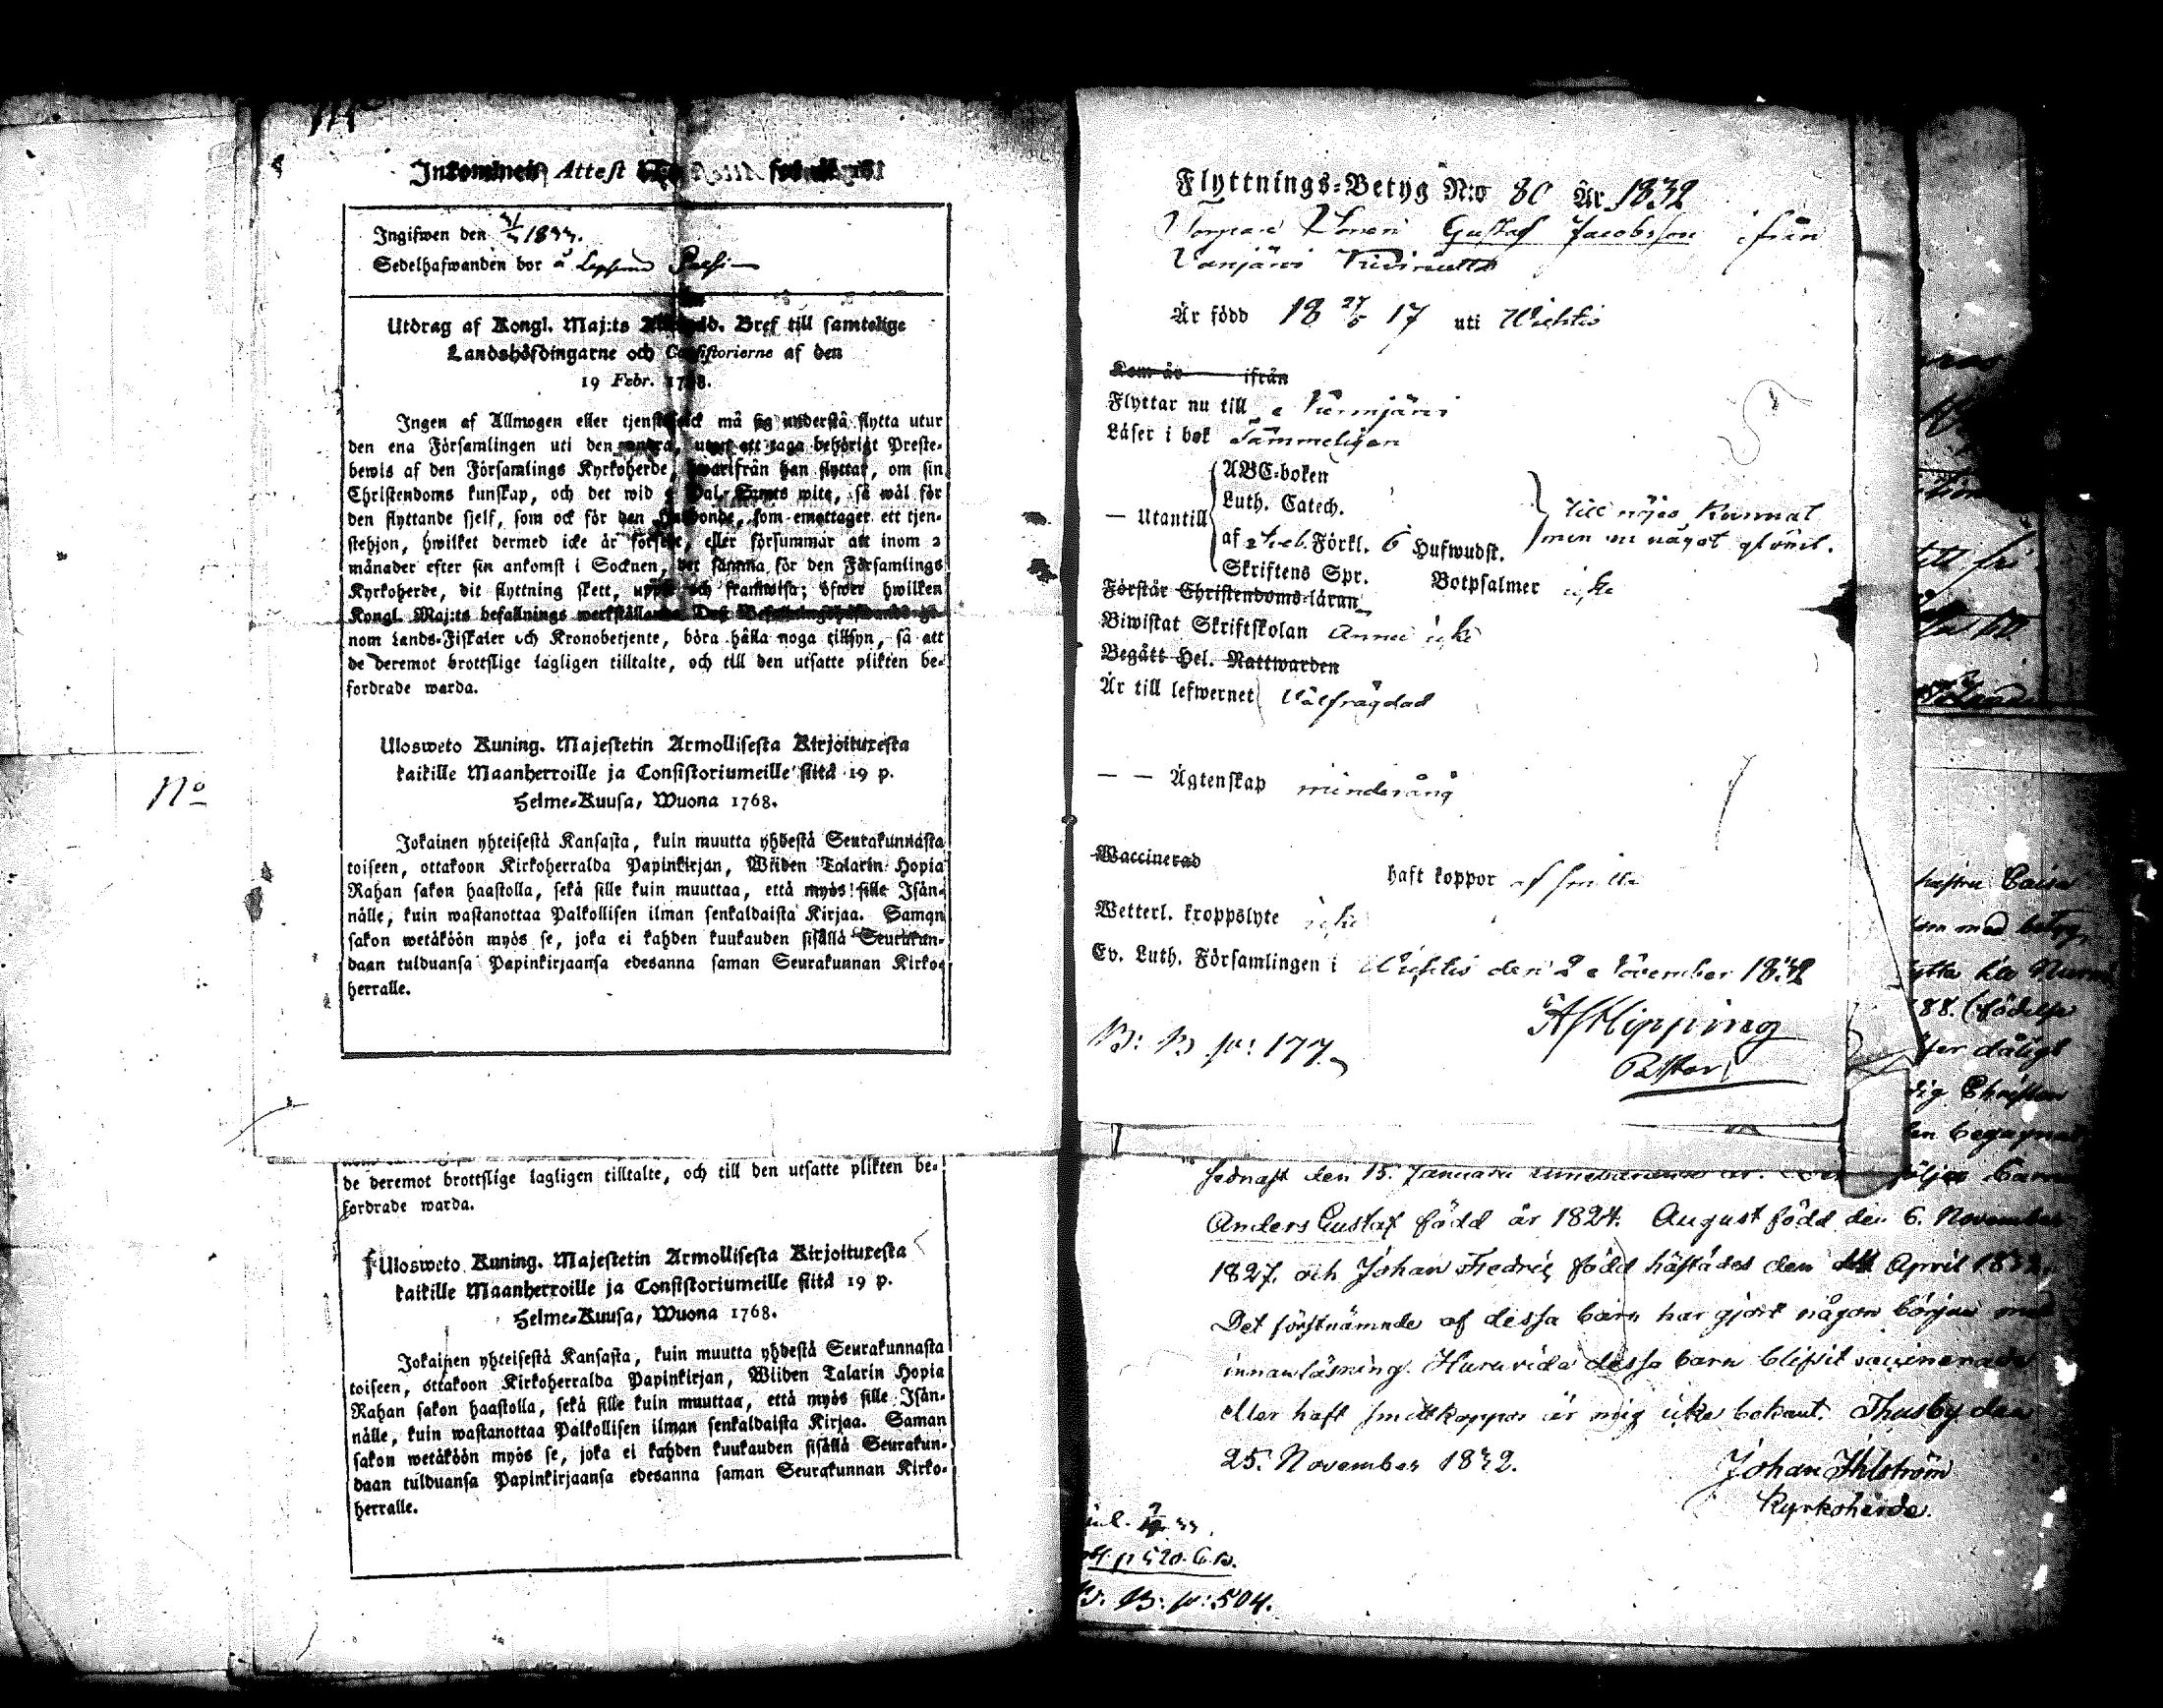 Attest
Ingifwen den 1833.
Sedelhafwanden bor å
Utdrag af Kongl. Maj:ts Bref till samtelige
Landshöfdingarne och Consistorierne af den
19 Febr. 1768.
Ingen af Allmogen eller må sig understå flytta utur
den ena Församlingen uti den andra, utan att taga behörigt Preste-
bewis af den Församlings Kyrkoherde, hwarifrån han flyttar, om sin
Christendoms kunskap, och det wid Dal. Smts wite, så wäl för
den flyttande sjelf, som ock för den som emottager ett tjen-
stehjon, hwilket dermed icke är försedt, eller försummar att inom 2
månader efter sin ankomst i Socknen, det samma för den Församlings
Kyrkoherde, dit flyttning skett, och framwisa; öfwer hwilken
Kongl. Maj:ts befallnings
nom Lands-Fiskaler och Kronobetjente, böra hålla noga tillsyn, så att
de deremot brottslige lagligen tilltalte, och till den utsatte plikten be-
fordrade warda.
Ulosweto Kuning. Majestetin Armollisesta Kirjoituxesta
kaikille Maanherroille ja Consistoriumeille siitä 19 p.
Helme-Kuusa, Wuona 1768.
Jokainen yhteisestä Kansasta, kuin muutta yhdestä Seurakunnasta
toiseen, ottakoon Kirkoherralda Papinkirjan, Wiiden Talarin Hopia
Rahan sakon haastolla, sekä sille kuin muuttaa, että myös sille Isän-
nälle, kuin wastanottaa Palkollisen ilman senkaldaista Kirjaa. Saman
sakon wetäköön myös se, joka ei kahden kuukauden sisällä Seurakun-
daan tulduansa Papinkirjaansa edesanna saman Seurakunnan Kirko-
herralle.
de deremot brottslige lagligen tilltalte, och till den utsatte plikten be-
fordrade warda.
Ulosweto Kuning. Majestetin Armollisesta Kirjoituxesta
kaikille Maanherroille ja Consistoriumeille siitä 19 p.
Helme-Kuusa, Wuona 1768.
Jokainen yhteisestä Kansasta, kuin muutta yhdestä Seurakunnasta
toiseen, ottakoon Kirkoherralda Papinkirjan, Wiiden Talarin Hopia
Rahan sakon haastolla, sekä sille kuin muuttaa, että myös sille Isän-
nälle, kuin wastanottaa Palkollisen ilman senkaldaista Kirjaa. Saman
sakon wetäköön myös se, joka ei kahden kuukauden sisällä Seurakun-
daan tulduansa Papinkirjaansa edesanna saman Seurakunnan Kirko-
herralle.
No
Flyttnings-Betyg N:o 80 År 1832
Gustaf Jacobsson ifrån
Vanjärvi
Är född 18 27/6 17 uti Wichtis
Kom år ifrån
Flyttar nu till Nurmjärvi
Läser i bok Sammeligen
ABC-boken
— Utantill Luth. Catech. till nöjes kunnat
af Förkl. 6 Hufwudst. men en något glömt.
Skriftens Spr. Botpsalmer icke
Förstår Christendoms-läran
Biwistat Skriftskolan Ännu icke
Begått Hel. Nattwarden
Är till lefwernet Välfrägdad
— — Ägtenskap minderårig
Waccinerad haft koppor
Wetterl. kroppslyte icke
Ev. Luth. Församlingen i Wichtis den 2 November 1832
Hipping
Pastor
B: B p: 177.
sednast den 15. Januarii
Anders Gustaf född år 1824. August född den 6. November
1827. och Johan Fredric född härstädes den April 1832.
Det förstnämnde af dessa barn har gjort någon början med
innanläsning. Huruvida dessa barn blifvit vaccinerade
eller haft smittkoppor är mig icke bekant. Thusby den
25. November 1832.
Johan Ihlström
Kyrkoherde.
p 520. C.B.
B. B: p: 504.
Caisa
som med betyg
88. (födelse
dåligt
Christen
begagnat